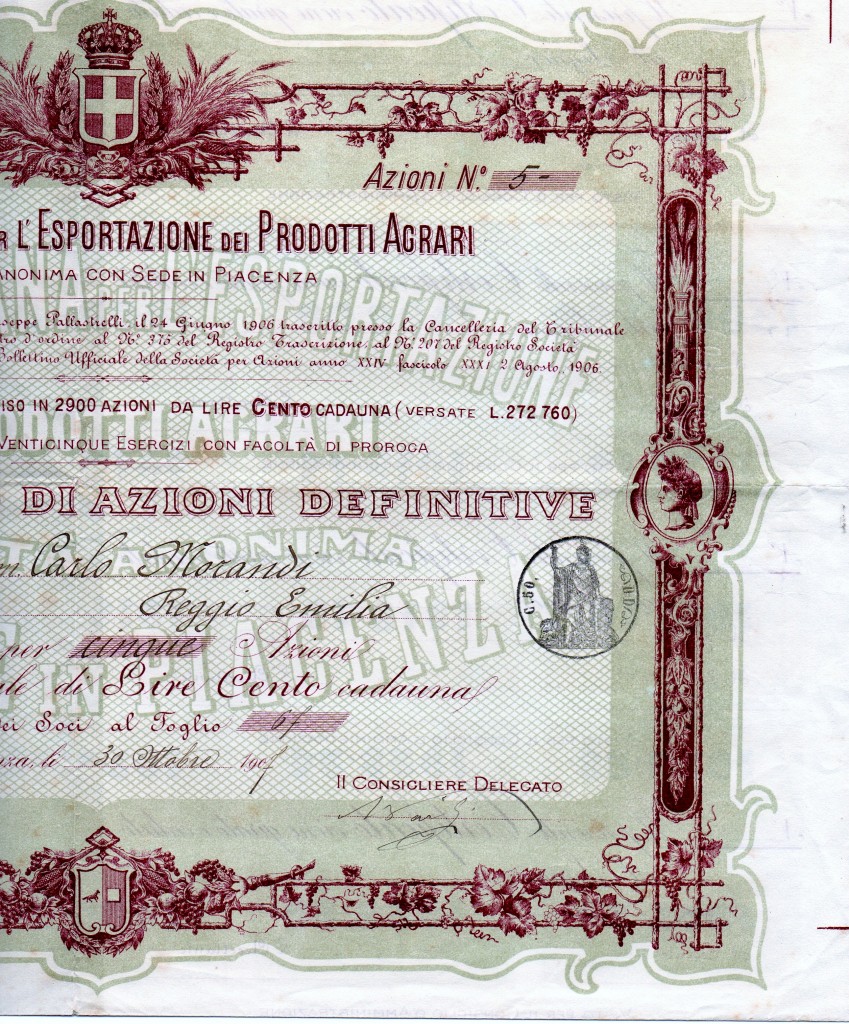 Azioni N.º 5-
R L'ESPORTAZIONE DEI PRODOTTI AGRARI
ANONIMA CON SEDE IN PIACENZA
seppe Pallastrelli, il 24 Giugno 1906 trascritto presso la Cancelleria del Tribunale
tro d'ordine al Nº 375 del Registro Trascrizione, al Nº 207 del Registro Società
Bollettino Ufficiale della Società per Azioni anno XXIV fascicolo XXXI 2 Agosto, 1906.
ISO IN 2900 AZIONI DA LIRE CENTO CADAUNA (VERSATE L. 272 760)
VENTICINQUE ESERCIZI CON FACOLTÀ DI PROROGA
DI AZIONI DEFINITIVE
m. Carlo Morandi
Reggio Emilia
C. 50.
per cinque Azioni
le di Lire Cento cadauna
dei Soci al Foglio
nza, li 30 Ottobre 190
Il CONSIGLIERE DELEGATO
NA PER L'ESPORTAZIONE
ODOTTI AGRARI
TÀ ANONIMA
IN PIACENZA